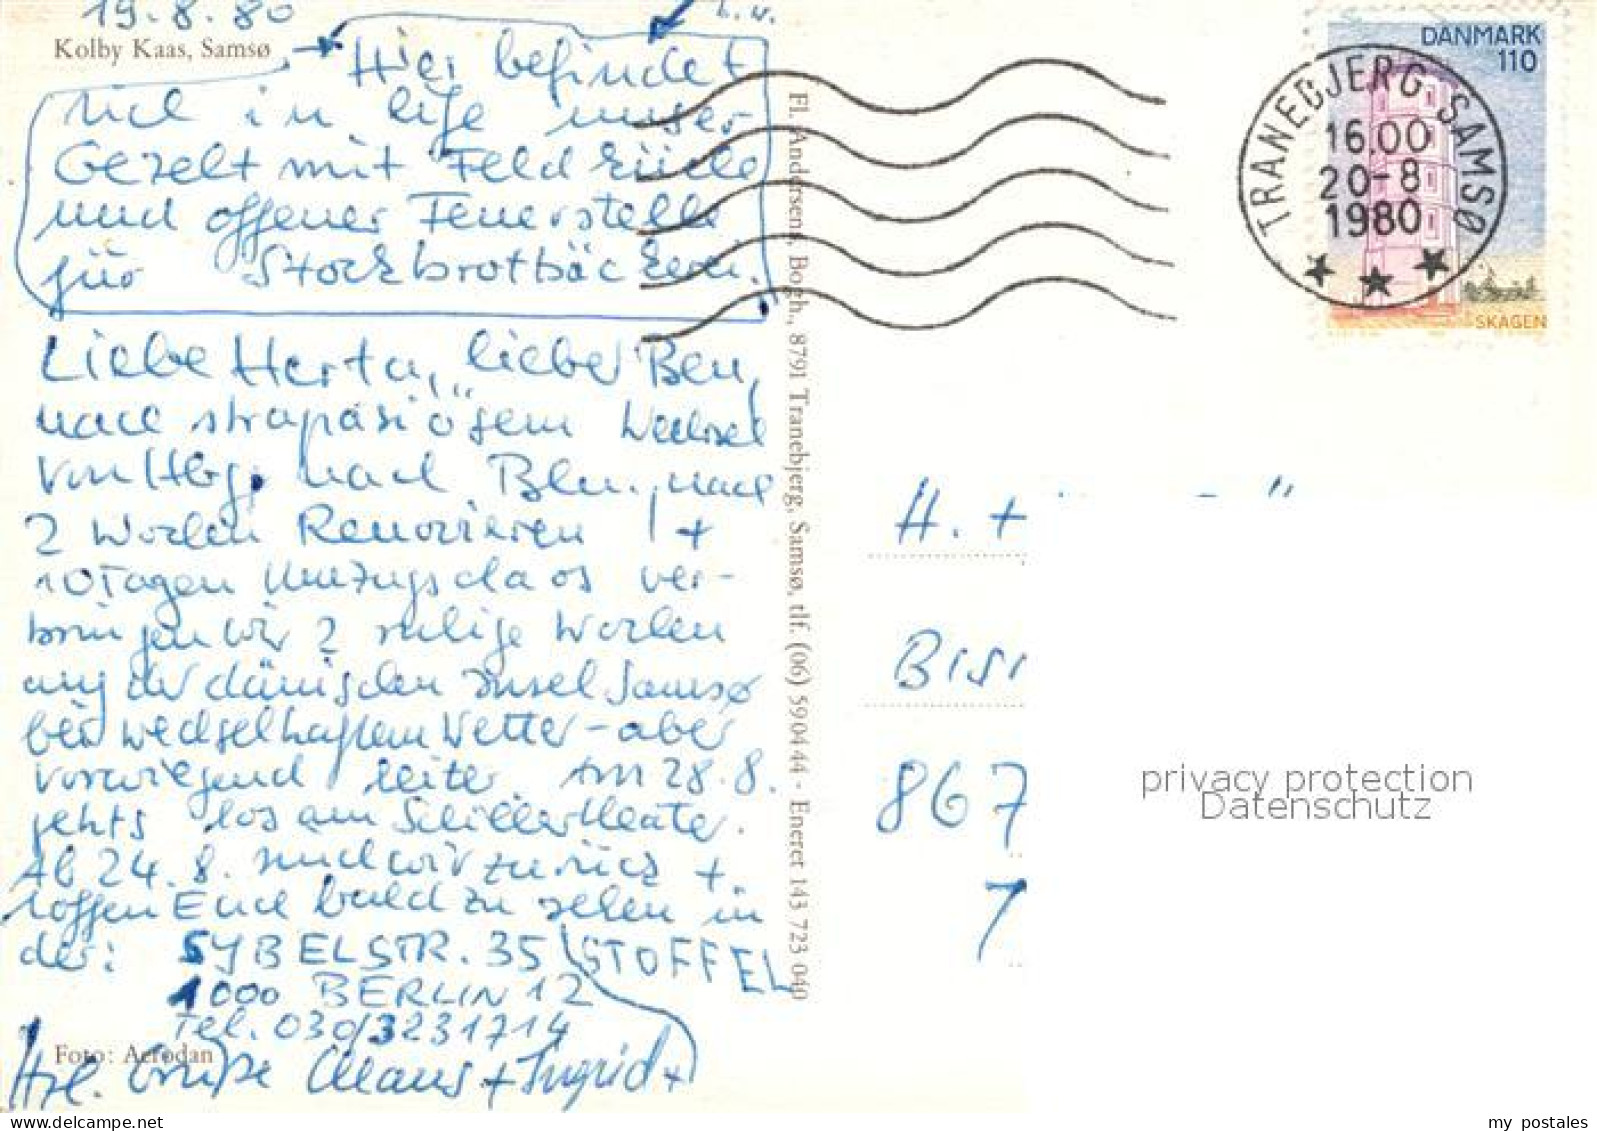 19.8.80
Kolby Kaas, Samsø
Hier befindet
sich in unser
Gezelt mit Feldküche
und offener Feuerstelle
für Stockbrotbäckerei.
Liebe Herta, lieber Ben,
nach strapasiösem Wechsel
von Hbg. nach Bln., nach
2 Wochen Renovieren +
10 Tagen Umzugschaos ver-
bringen wir 2 ruhige Wochen
auf der dänischen Insel Samsø
bei wechselhaftem Wetter – aber
vorwiegend heiter. Am 28.8.
gehts los am Schillertheater.
Ab 24.8. sind wir zurück +
hoffen Euch bald zu sehen in
der: SYBELSTR. 35 STOFFEL
1000 BERLIN 12
Tel. 030/3231714
Foto: Aerodan
Hzl. Grüße Claus + Ingrid +
Fl. Andersens Bogh., 8791 Tranebjerg, Samsø, tlf. (06) 590444 - Eneret 143 723 040
DANMARK
110
SKAGEN
TRANEBJERG, SAMSØ
16.00
20-8
1980
H. +
867
privacy protection
Datenschutz
my postales